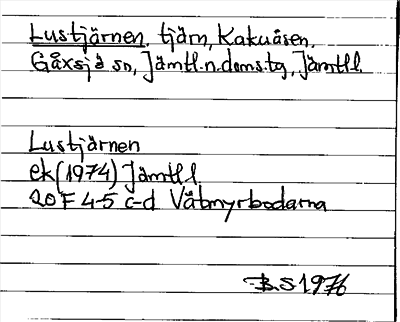 Lustjärnen, tjärn, Kakuåsen,
Gåxsjö sn, Jämtl.n.doms.tg, Jämtl.l.
Lustjärnen
ek (1974) Jämtl l
20 F 4-5 c-d Våtmyrbodarna
B.S 1976